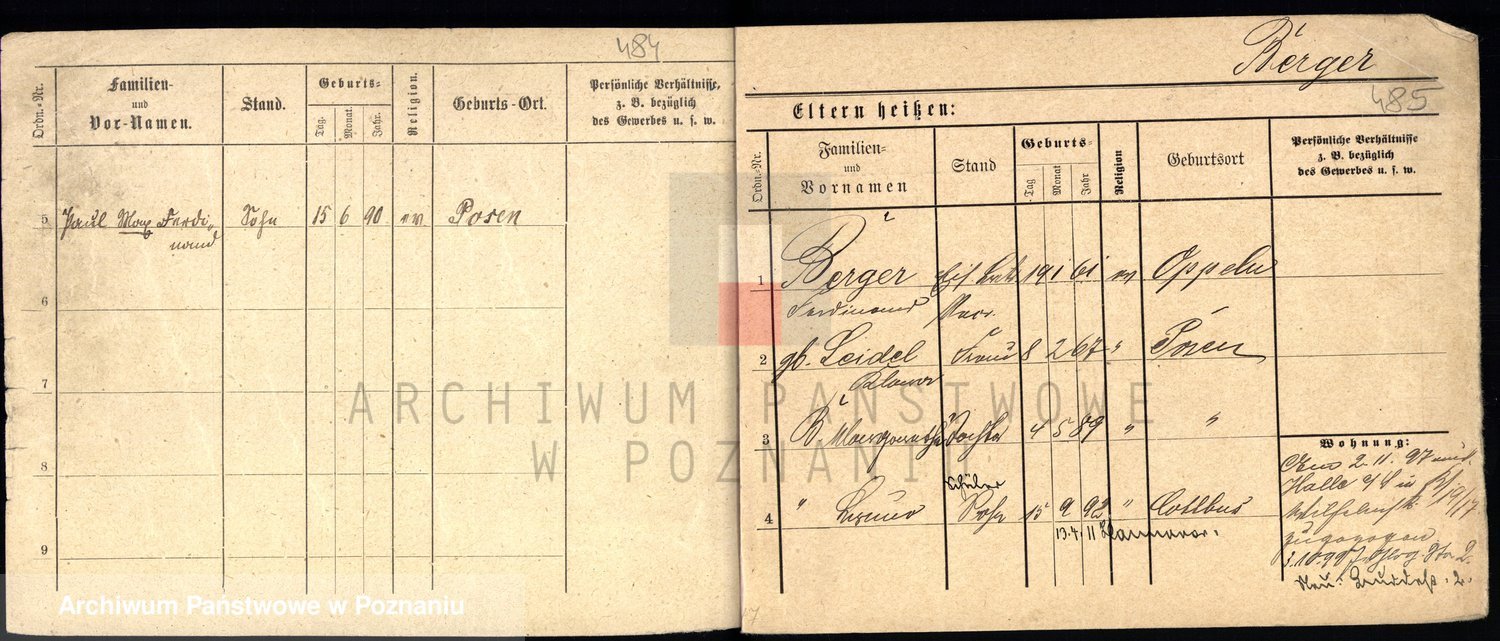 484
Ordn.-Nr.
Familien-
und
Vor-Namen.
Stand.
Geburts-
Tag.
Monat.
Jahr.
Religion.
Geburts-Ort.
Persönliche Verhältnisse,
z. B. bezüglich
des Gewerbes u. s. w.
5 Paul Max Ferdi- Sohn 15 6 90 ev Posen
nand
6
7
8
9
Berger
485
Eltern heißen:
Ordn.-Nr.
Familien-
und
Vornamen
Stand
Geburts-
Tag
Monat
Jahr
Religion
Geburtsort
Persönliche Verhältnisse
z. B. bezüglich
des Gewerbes u. s. w.
1 Berger 19 1 61 ev Oppeln
Ferdinand
2 gb. Seidel Frau 8 2 67 " Posen
3 B Margarethe Tochter 4 5 89 " "
Schüler
4 " Bruno Sohn 15 9 92 " Cottbus
13.4.11 Hannover.
Wohnung:
2.11.97
Halle a/S in
19/17
zugezogen
2.
2.
ARCHIWUM PAŃSTWOWE
W POZNANIU
Archiwum Państwowe w Poznaniu